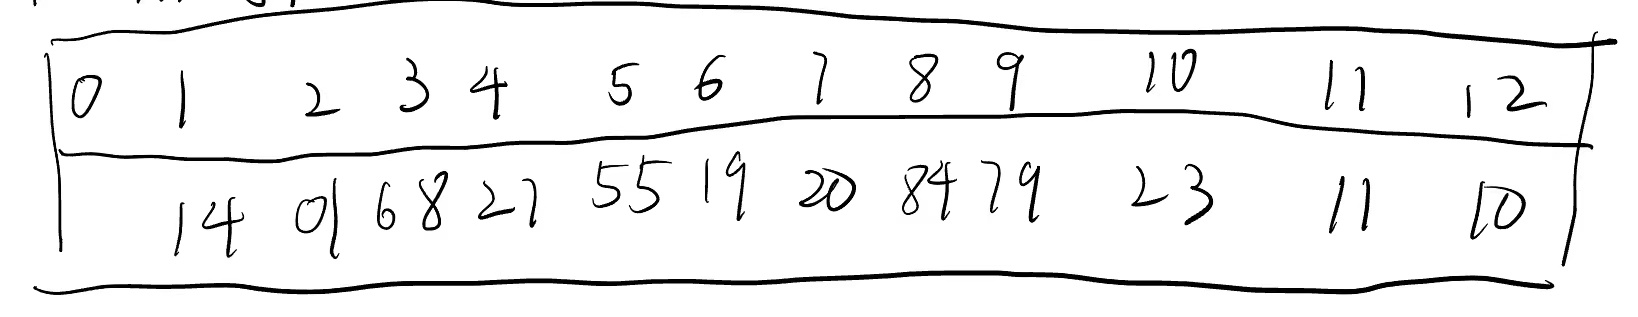 0 1 2 3 4 5 6 7 8 9 10 11 12
14 01 68 27 55 19 20 84 79 23 11 10